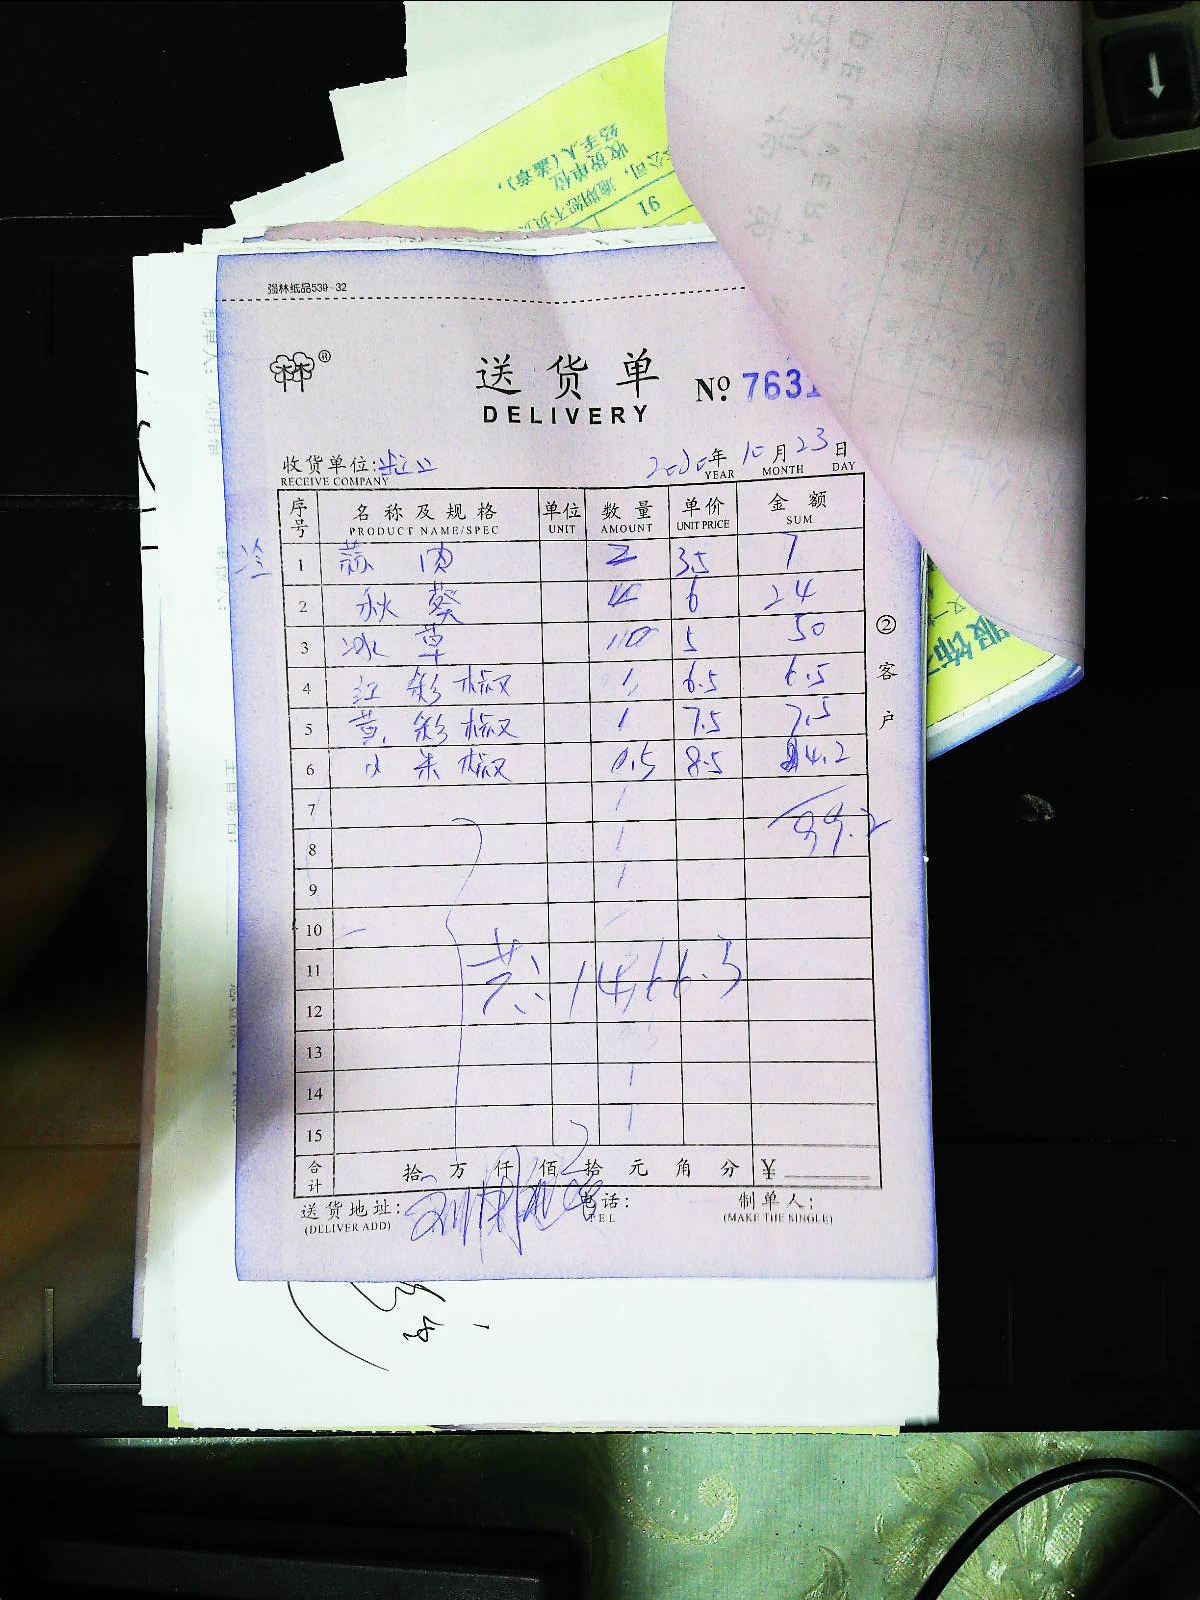 经手人(盖章):
收货单位
91
强林纸品539-32
®
送货单
№ 7631
DELIVERY
收货单位:
RECEIVE COMPANY
2020年 10月 23日
YEAR MONTH DAY
序号 名称及规格 单位 数量 单价 金额
PRODUCT NAME/SPEC UNIT AMOUNT UNIT PRICE SUM
冷 1 蒜肉 2 3.5 7
2 秋葵 4 6 24
3 冰草 10 5 50
4 红彩椒 1 6.5 6.5
5 黄彩椒 1 7.5 7.5
6 小米椒 0.5 8.5 4.2
7
99.2
8
9
10
11
共: 1466.3
12
13
14
15
合计 拾 万 仟 佰 拾 元 角 分 ¥
送货地址: 电话: 制单人:
(DELIVER ADD) TEL (MAKE THE SINGLE)
②客户